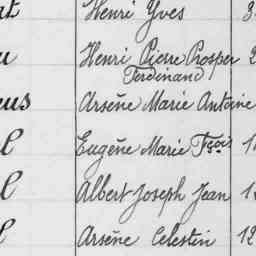 Henri Yves
Henri Pierre Prosper
Ferdinand
Arsène Marie Antoine
Eugène Marie Fçois
Albert Joseph Jean
Arsène Celestin 12